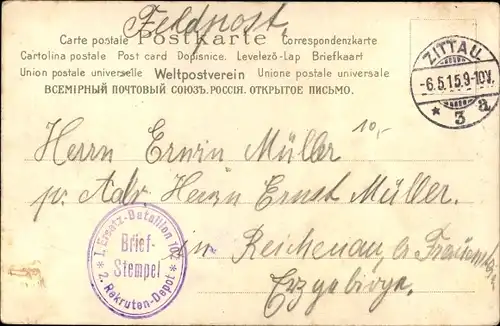 Feldpost.
Carte postale Postkarte Correspondenzkarte
Cartolina postale Post card Dopisnice. Levelező-Lap Briefkaart
Union postale universelle Weltpostverein Unione postale universale
ВСЕМІРНЫЙ ПОЧТОВЫЙ СОЮЗЪ.РОССІЯ. ОТКРЫТОЕ ПИСЬМО.
ZITTAU
-6.5.15.9-10V.
* 3 a
10,-
Herrn Erwin Müller
p. Adr. Herrn Ernst Müller.
in Reichenau, b. Frauenstein
Erzgebirge.
1. Ersatz-Bataillon
Brief-
Stempel
* 2. Rekruten-Depot *